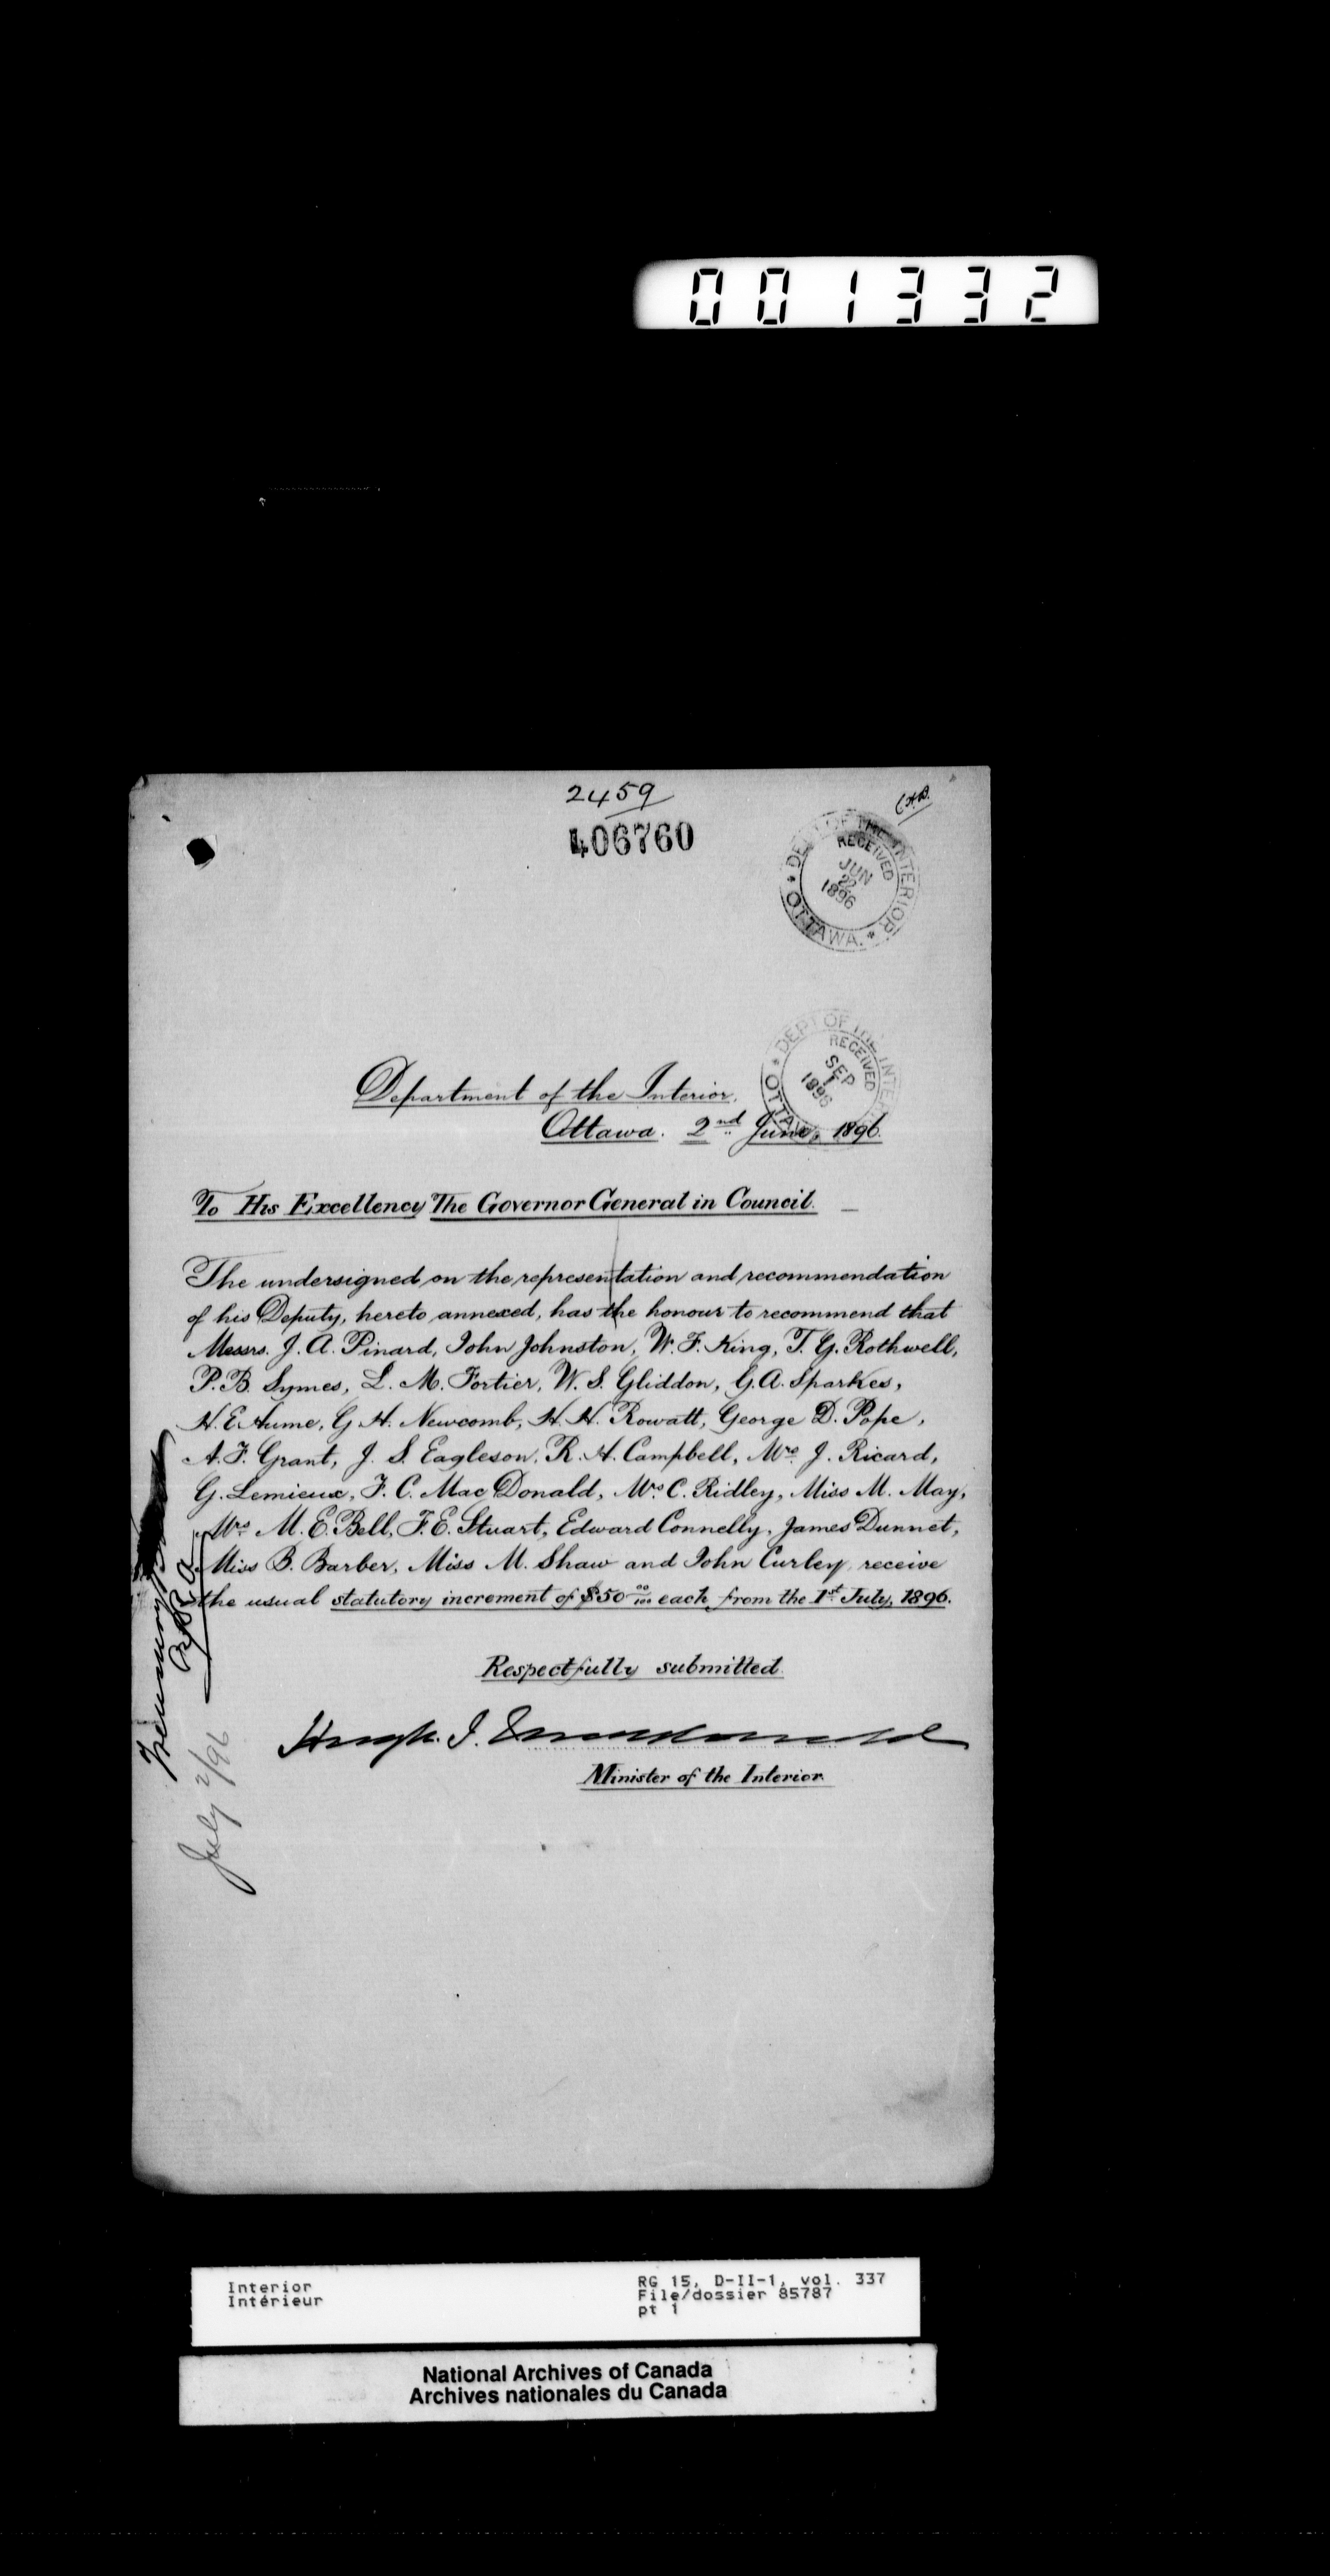 001332
2459
406760
DEPT OF THE INTERIOR
RECEIVED
JUN
22
1896
OTTAWA.
DEPT OF THE INTER
RECEIVED
SEP
1
1896
OTTAWA
Department of the Interior.
Ottawa. 2nd June, 1896.
To His Excellency The Governor General in Council.
The undersigned on the representation and recommendation
of his Deputy, hereto annexed, has the honour to recommend that
Messrs. J. A. Pinard, John Johnston, W. F. King, T. G. Rothwell,
P. B. Symes, L. M. Fortier, W. S. Gliddon, G. A. Sparkes,
H. E. Hume, G. H. Newcomb, H. H. Rowatt, George D. Pope,
A. F. Grant, J. S. Eagleson, R. H. Campbell, Mrs. J. Ricard,
G. Lemieux, F. C. Mac Donald, Mrs. C. Ridley, Miss M. May,
Mrs M. E. Bell, F. E. Stuart, Edward Connelly, James Dunnet,
Miss B. Barber, Miss M. Shaw and John Curley, receive
the usual statutory increment of $50 00/100 each from the 1st July, 1896.
Respectfully submitted.
Hugh. J. Macdonald
Minister of the Interior.
July 2/96
Interior
Intérieur
RG 15, D-II-1, vol. 337
File/dossier 85787
pt 1
National Archives of Canada
Archives nationales du Canada